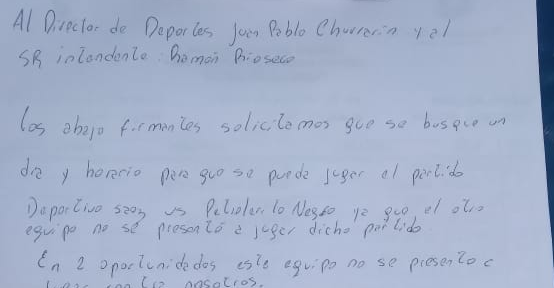 Al Director de Deportes Juan Pablo Churrarin y al
SR intendente: Ramon Rioseco
los abajo firmantes solicitamos que se busque un
dia y horario para que se puede jugar el partido
Deportivo saoz vs Petrolerito Negro ya que el otro
equipo no se presentó a jugar dicho partido
En 2 oportunidades este equipo no se presento a
jugar contra nosotros.